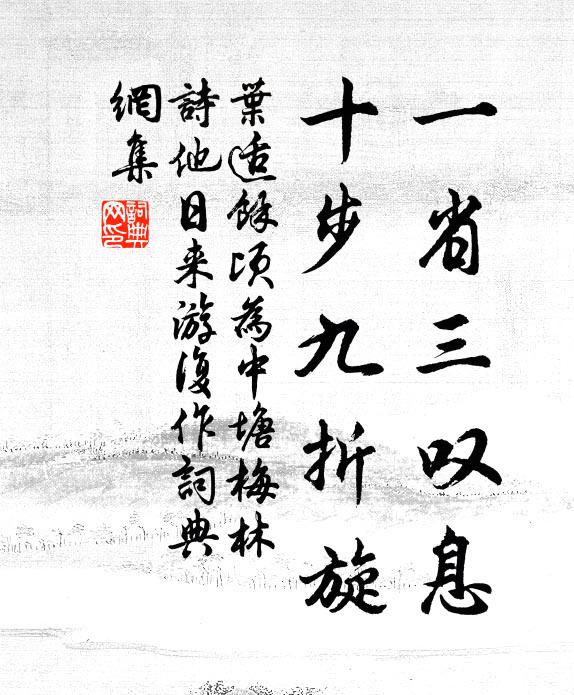 一省三叹息
十步九折旋
葉适餘頃為中塘梅林
詩他日来游復作詞典
網集
詞典
网印